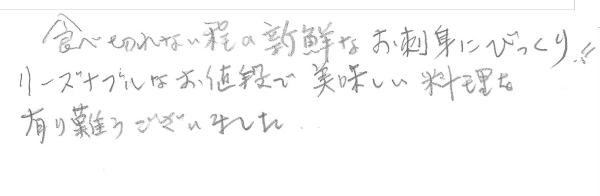 食べ切れない程の新鮮なお刺身にびっくり!!
リーズナブルなお値段で美味しい料理を
有り難うございました